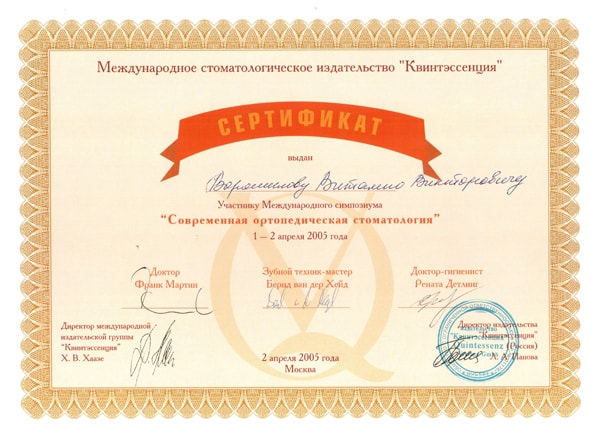 Международное стоматологическое издательство "Квинтэссенция"
СЕРТИФИКАТ
выдан
Ворошилову Виталию Викторовичу
Участнику Международного симпозиума
"Современная ортопедическая стоматология"
1 – 2 апреля 2005 года
Доктор
Франк Мартин
Зубной техник-мастер
Бернд ван дер Хейд
Доктор-гигиенист
Рената Детлинг
Директор международной
издательской группы
"Квинтэссенция"
Х. В. Хаазе
2 апреля 2005 года
Москва
Директор издательства
"Квинтэссенция"
(Россия)
Л. А. Панова
Издательство
"Квинтэссенция"
Quintessenz